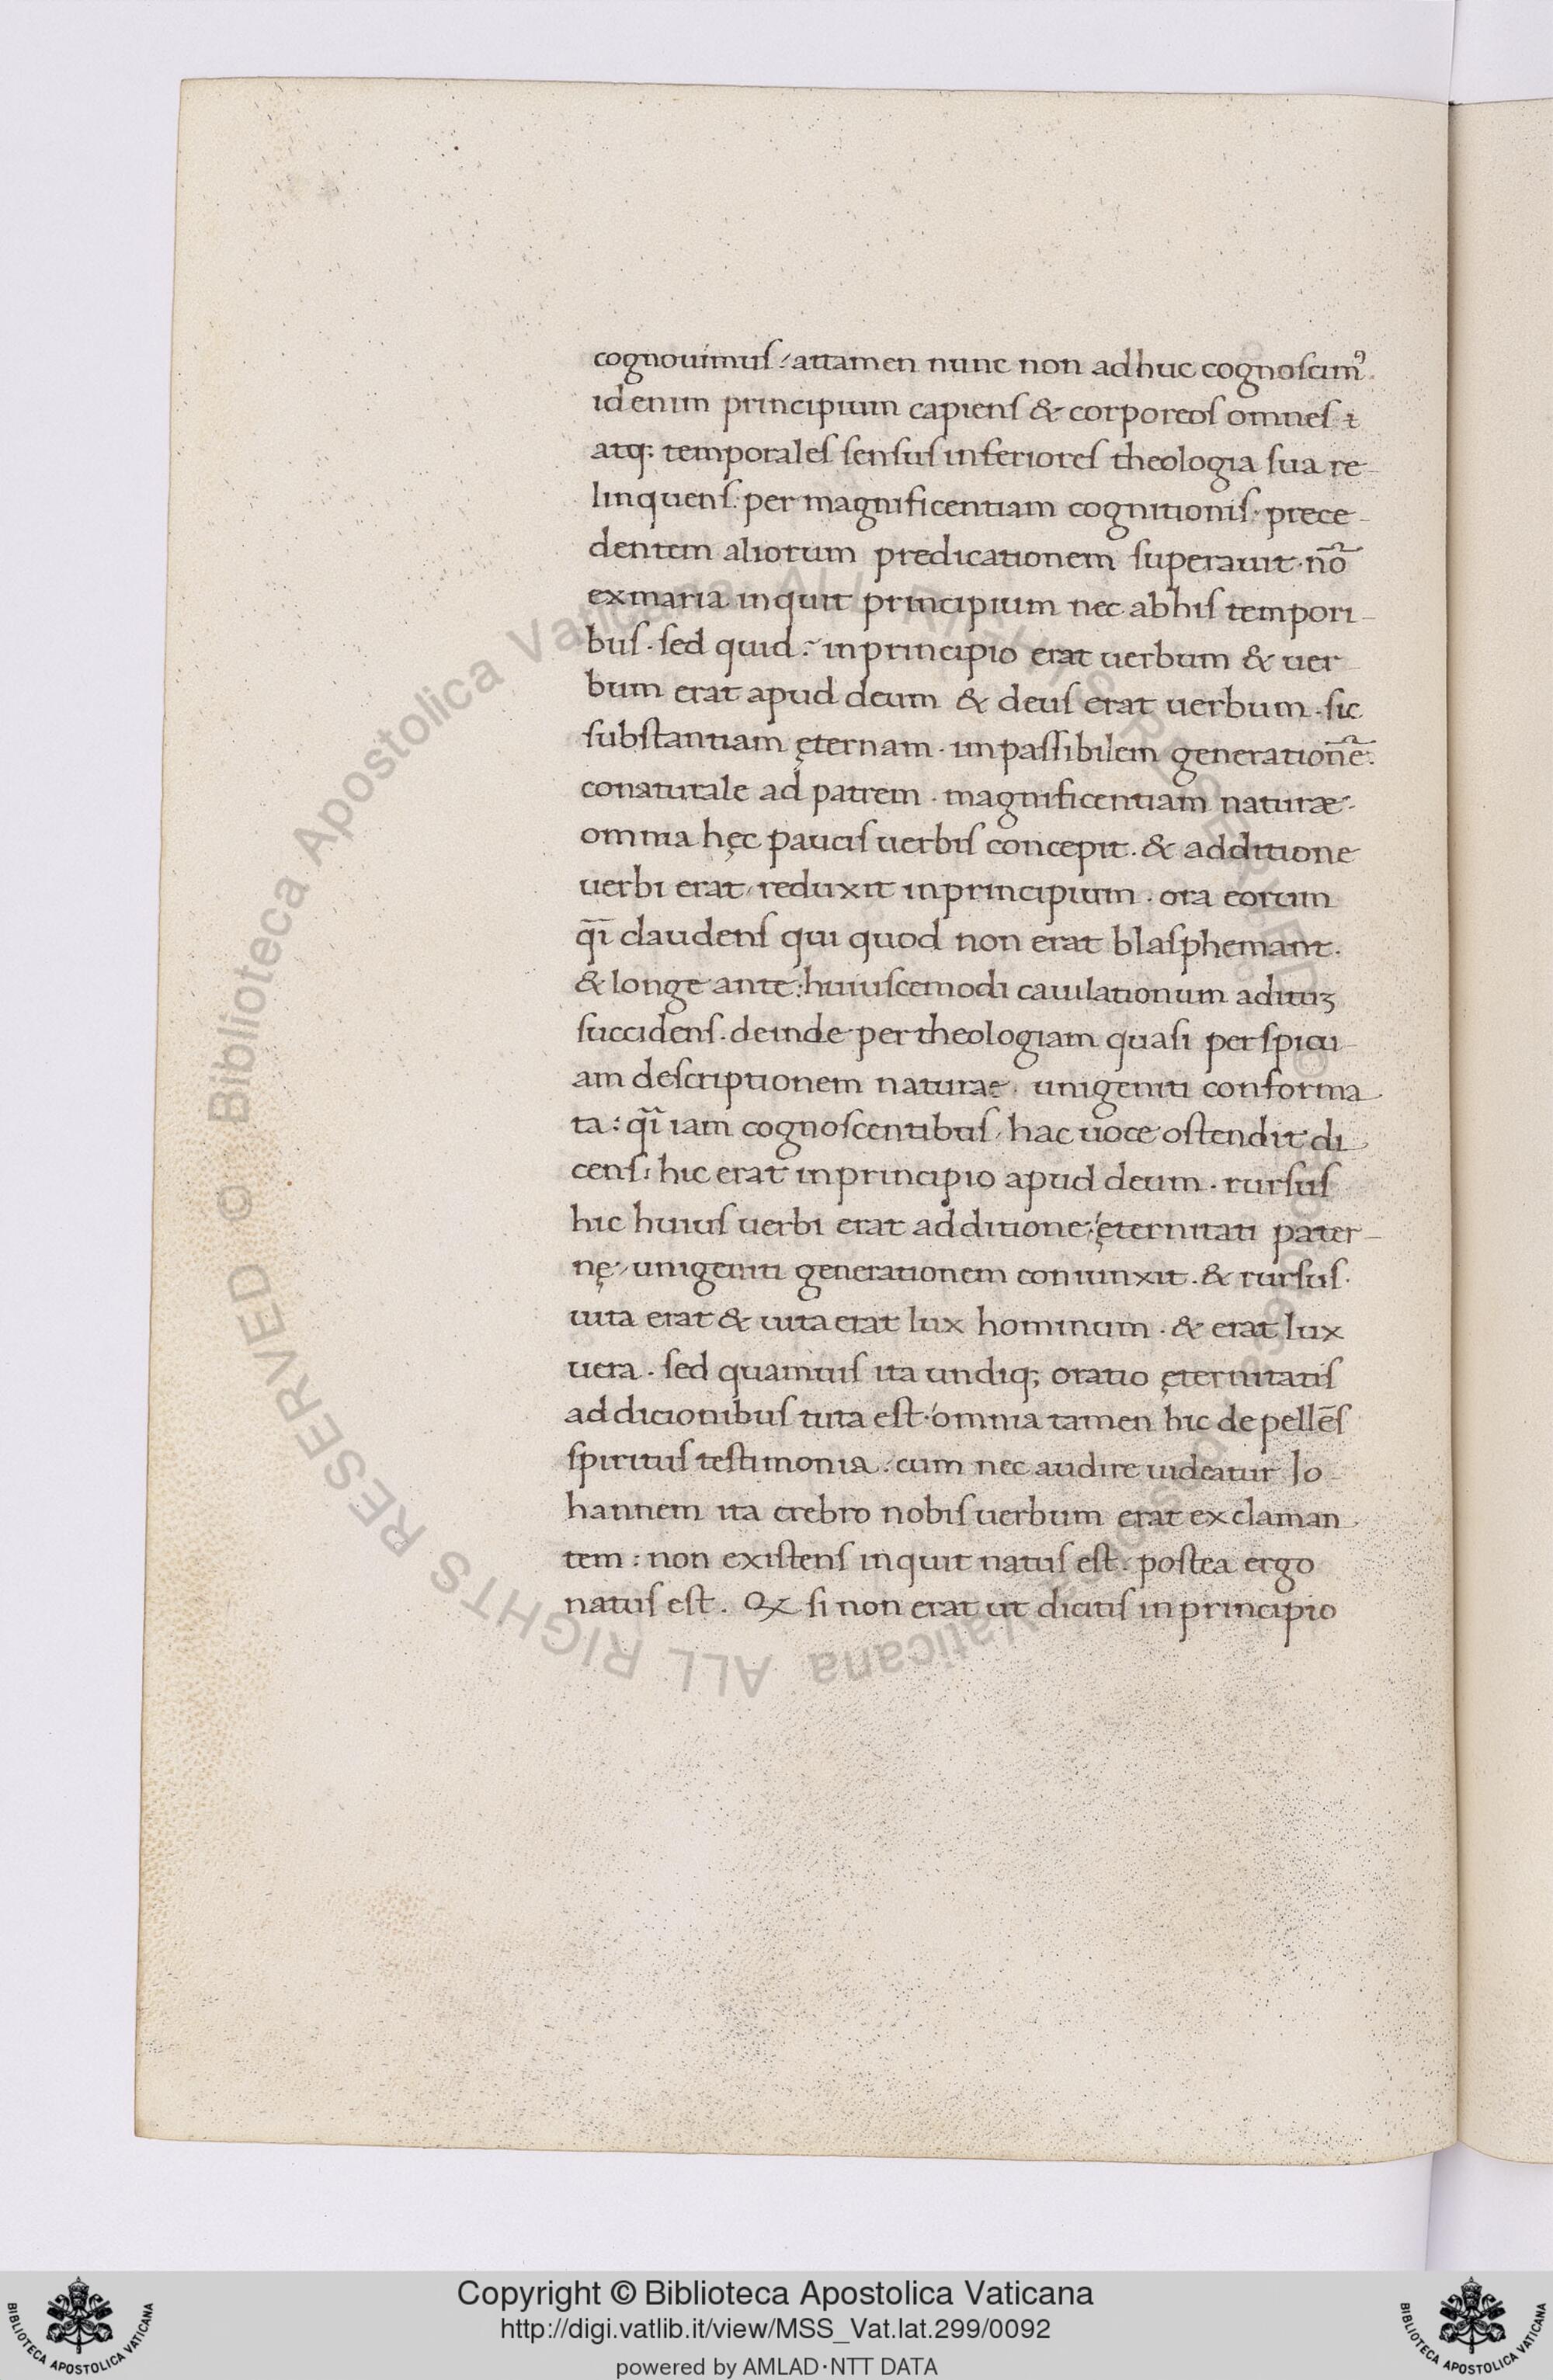 cognouimus: attamen nunc non adhuc cognoscim⁹.
id enim principium capiens & corporeos omnes ⁊
atq; temporales sensus inferiores theologia sua re-
linquens: per magnificentiam cognitionis. prece-
dentem aliorum predicationem superauit. nō
ex maria inquit principium nec ab his tempori-
bus. sed quid: in principio erat uerbum & uer-
bum erat apud deum & deus erat uerbum. sic
substantiam ęternam. inpassibilem generationē.
conaturale ad patrem. magnificentiam naturæ.
omnia hęc paucis uerbis concepit. & additione
uerbi erat, reduxit in principium. ora eorum
qi̅ claudens qui quod non erat blasphemant.
& longe ante: huiuscemodi cauilationum adituʒ
succidens. deinde per theologiam quasi perspicu-
am descriptionem naturae. unigeniti conforma-
ta: qi̅ iam cognoscentibus, hac uoce ostendit di-
cens: hic erat in principio apud deum. rursus
hic huius uerbi erat additione: ęternitati pater-
nę, unigeniti generationem coniunxit. & rursus.
uita erat & uita erat lux hominum. & erat lux
uera. sed quamuis ita undiq; oratio ęternitatis
addicionibus tuta est. omnia tamen hic depellēs
spiritus testimonia: cum nec audire uideatur Io-
hannem ita crebro nobis uerbum erat exclaman-
tem: non existens inquit natus est. postea ergo
natus est. Qx si non erat ut dicitis in principio
© Biblioteca Apostolica Vaticana ALL RIGHTS RESERVED
Copyright © Biblioteca Apostolica Vaticana
http://digi.vatlib.it/view/MSS_Vat.lat.299/0092
powered by AMLAD·NTT DATA
BIBLIOTECA APOSTOLICA VATICANA
BIBLIOTECA APOSTOLICA VATICANA